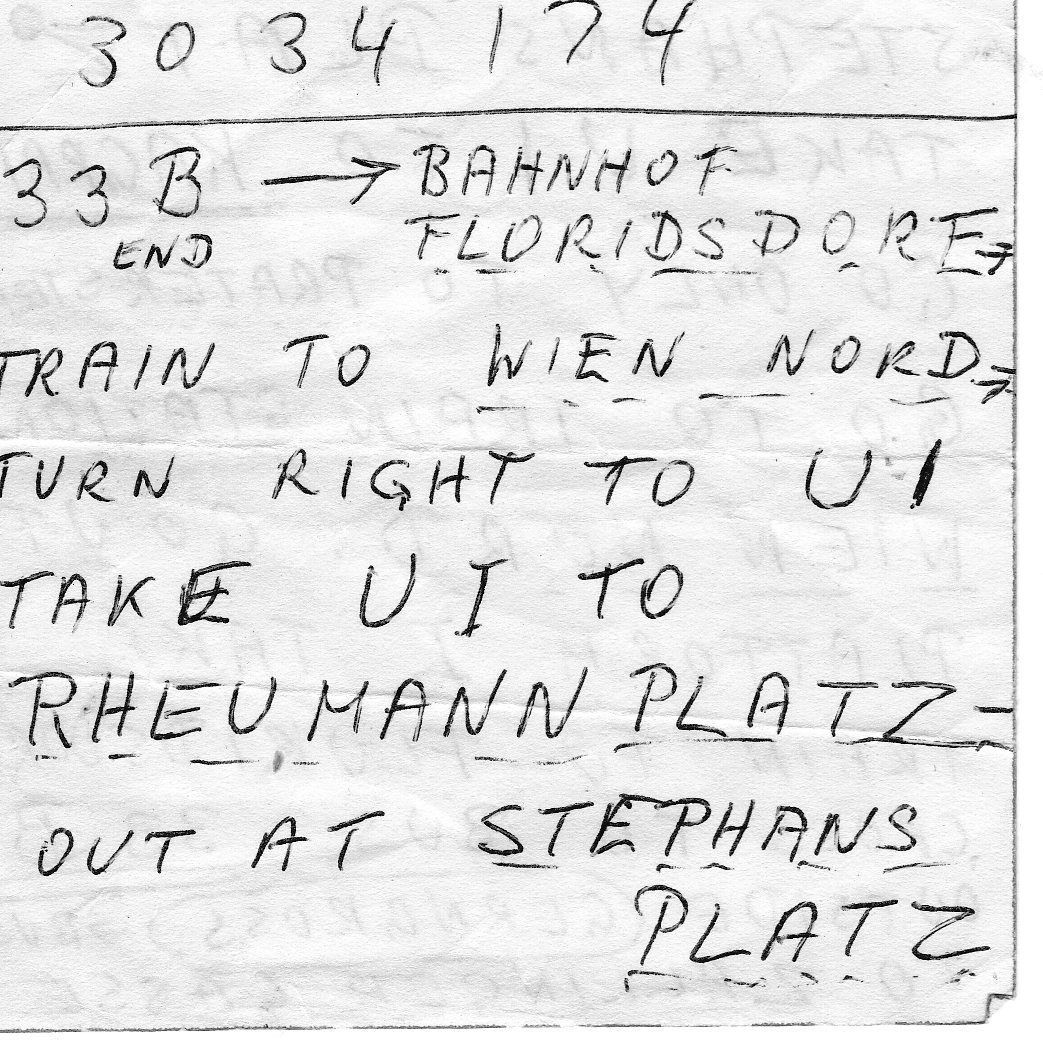 30 34 174
33B → BAHNHOF
END FLORIDSDORF →
TRAIN TO WIEN NORD →
TURN RIGHT TO U1
TAKE U1 TO
RHEUMANN PLATZ -
OUT AT STEPHANS
PLATZ